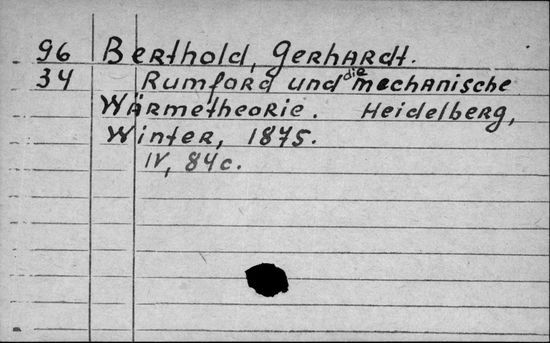 96 Berthold, Gerhardt.
34 Rumford und die mechanische
Wärmetheorie. Heidelberg,
Winter, 1875.
IV, 84c.